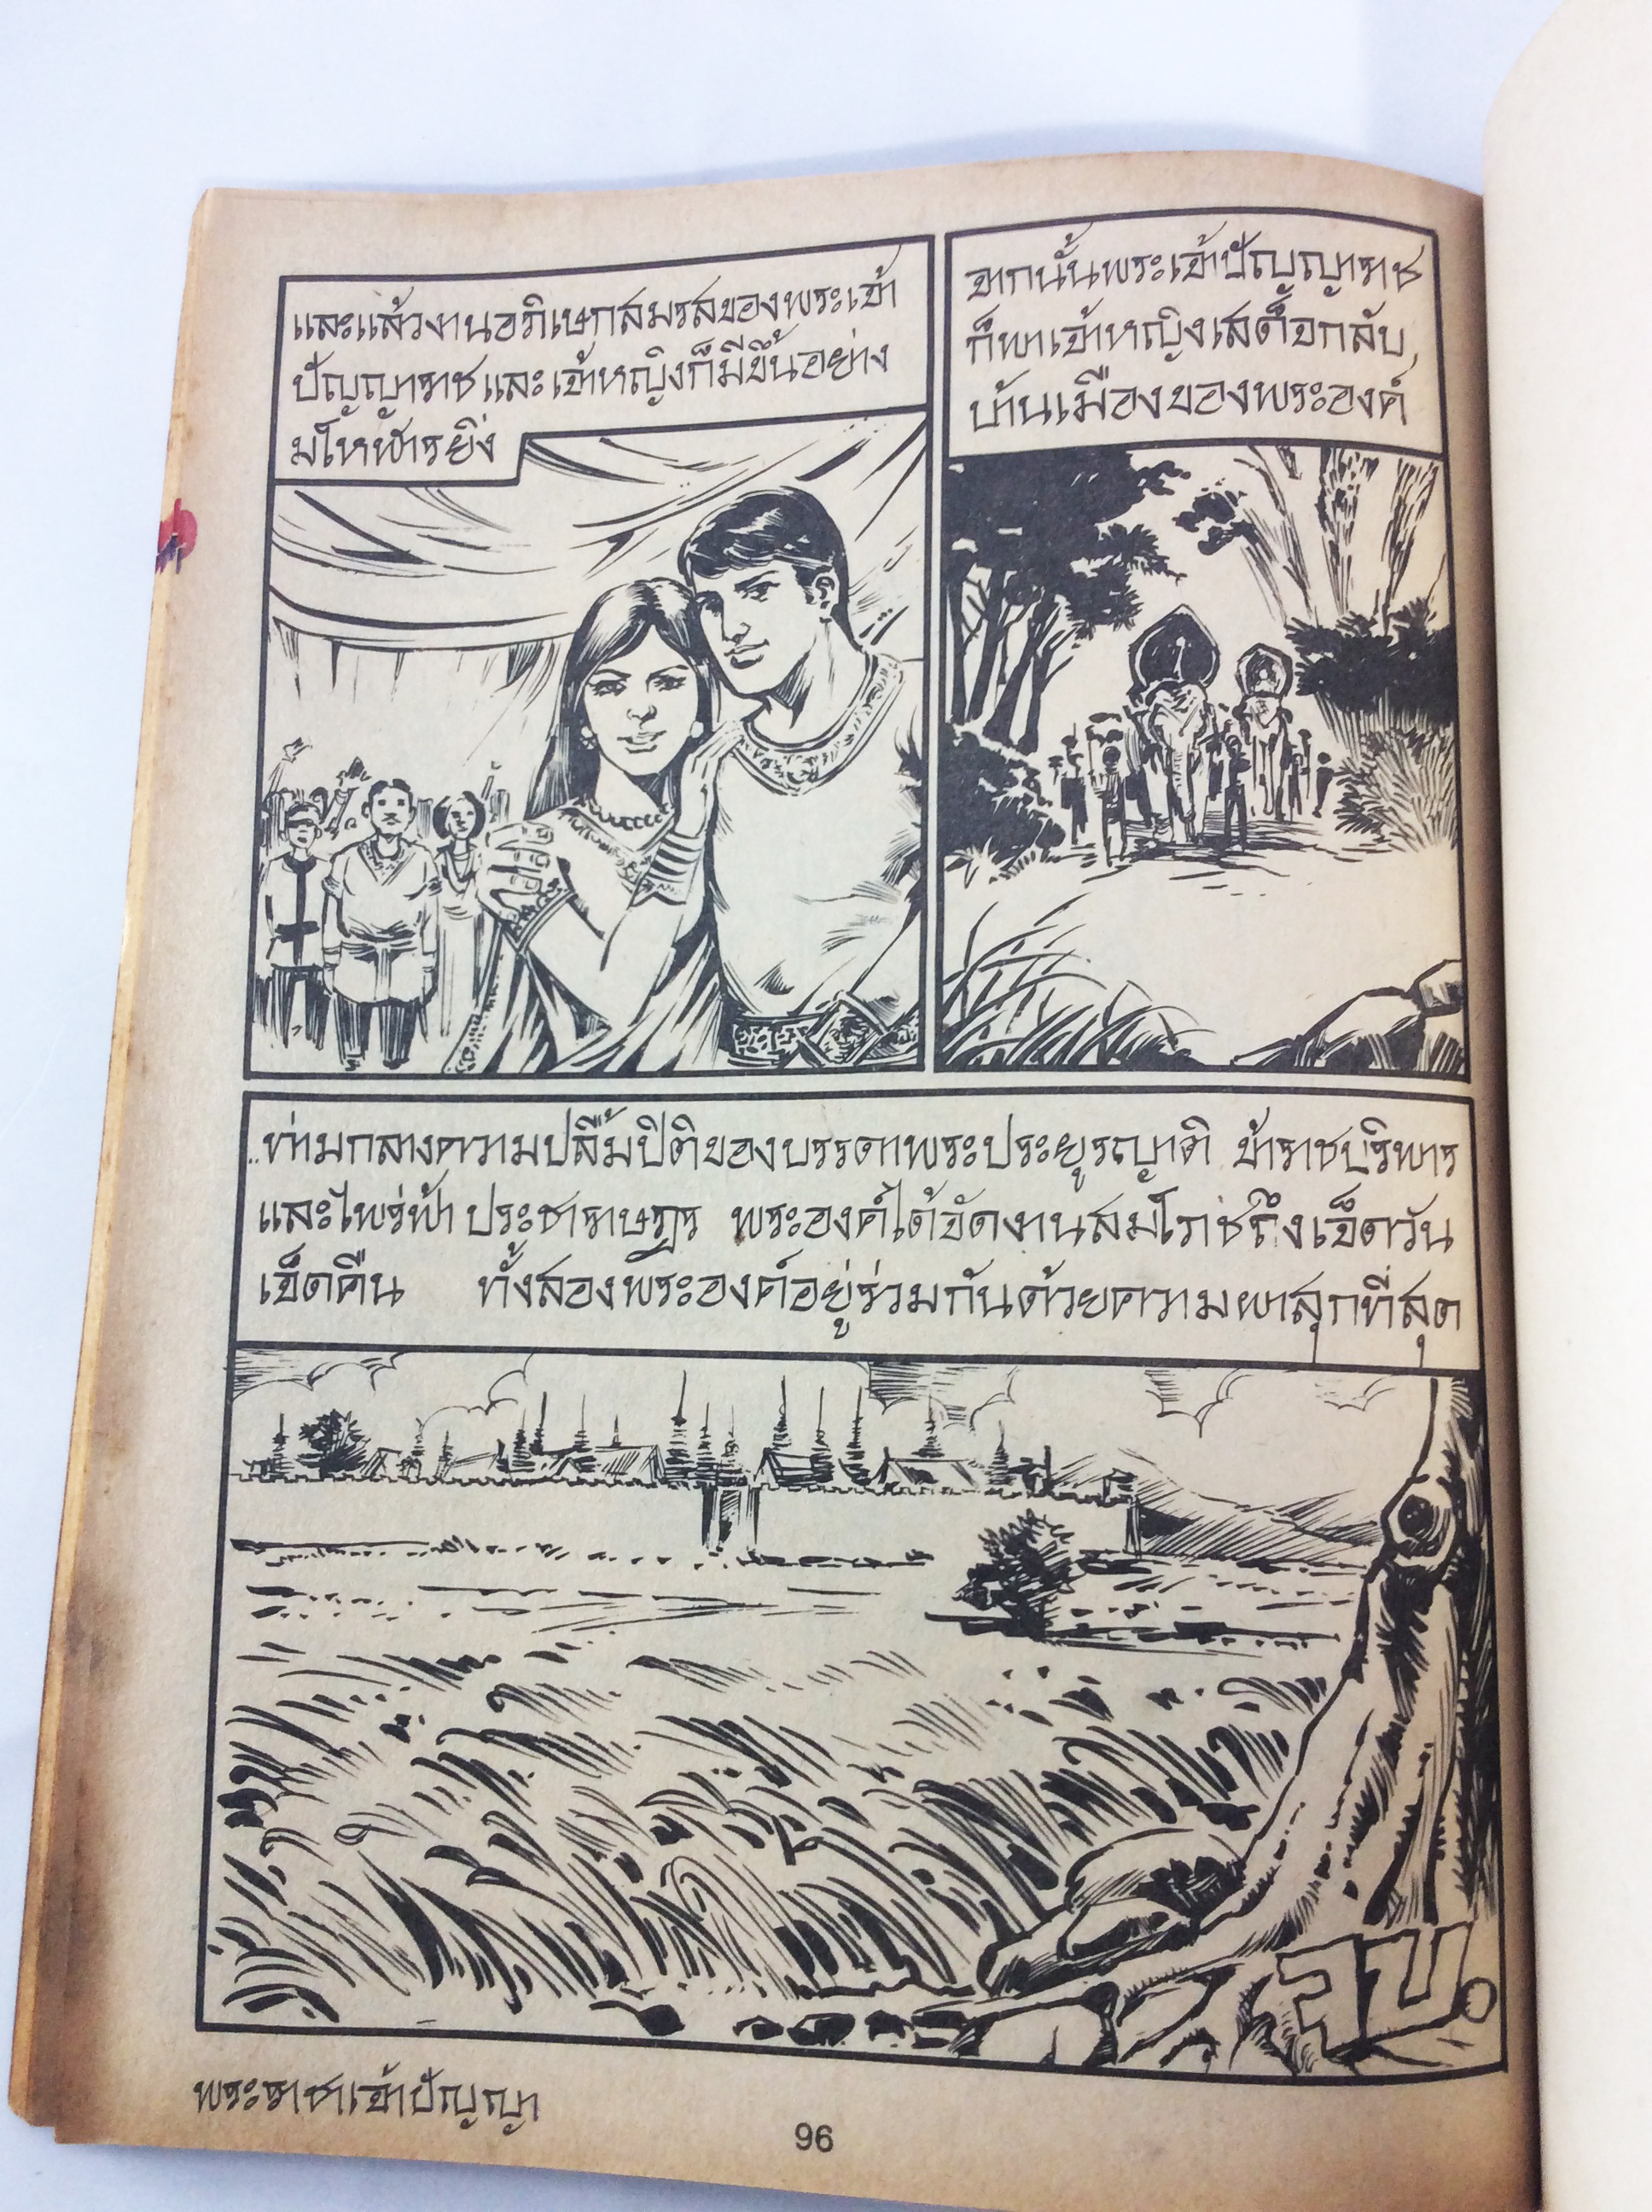 และแล้วงานอภิเษกสมรสของพระเจ้า
ปัญญาราชและเจ้าหญิงก็มีขึ้นอย่าง
มโหฬารยิ่ง
จากนั้นพระเจ้าปัญญาราช
ก็พาเจ้าหญิงเสด็จกลับ
บ้านเมืองของพระองค์
..ท่ามกลางความปลื้มปิติของบรรดาพระประยูรญาติ ข้าราชบริพาร
และไพร่ฟ้า ประชาราษฎร พระองค์ได้จัดงานสมโภชถึงเจ็ดวัน
เจ็ดคืน ทั้งสองพระองค์อยู่ร่วมกันด้วยความผาสุกที่สุด
จบ.
พระราชาเจ้าปัญญา
96